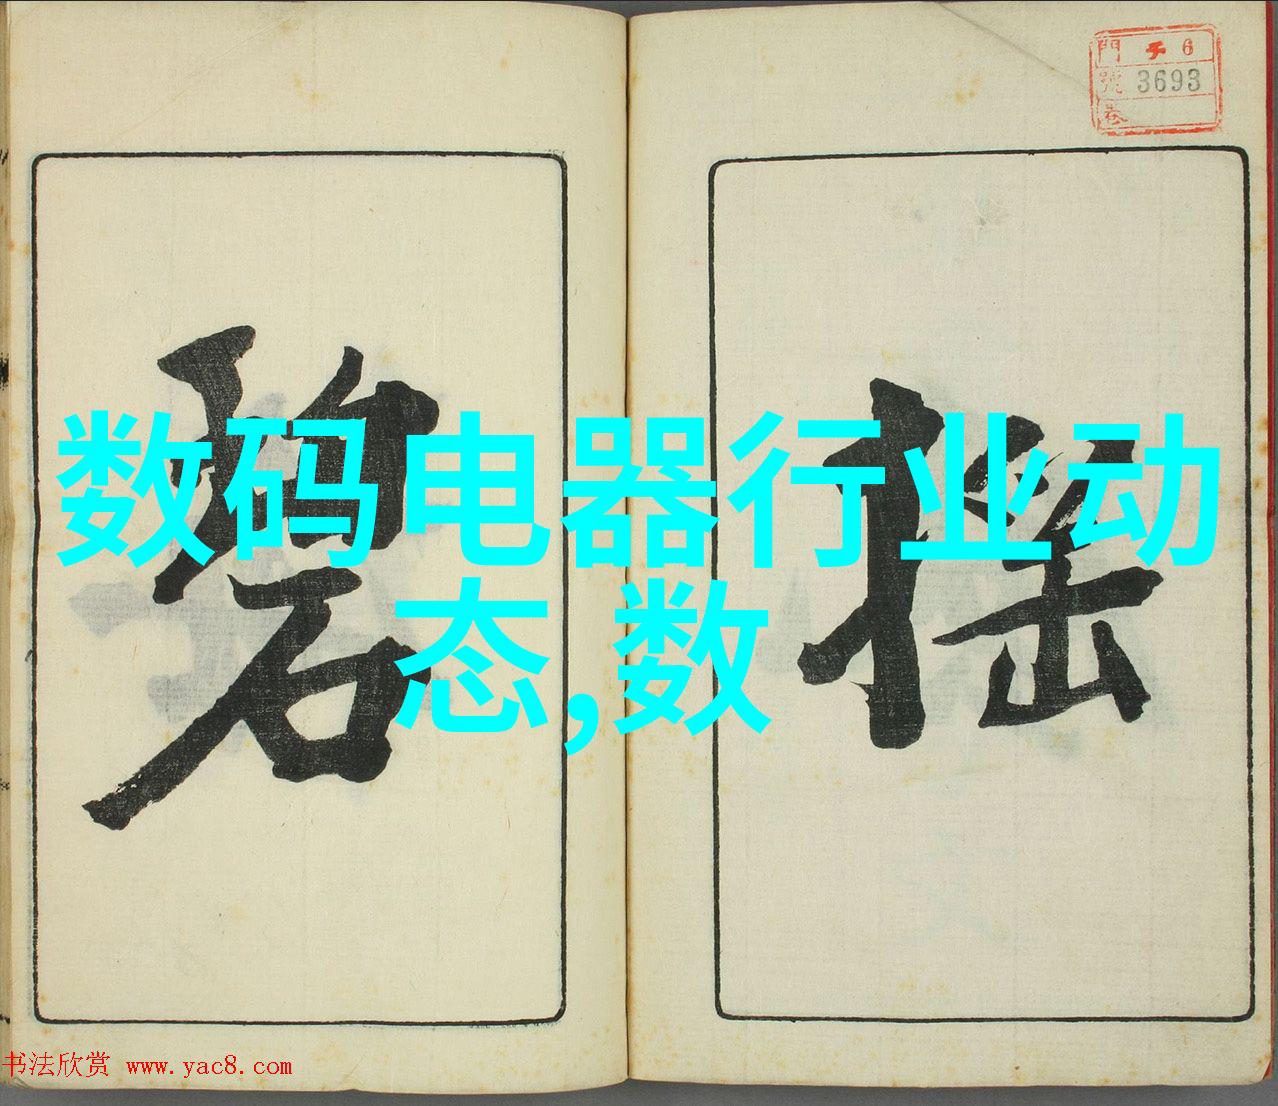 門 チ 6
號 3693
卷
搖
碧
数码电器行业动
态,数
书法欣赏 www.yac8.com